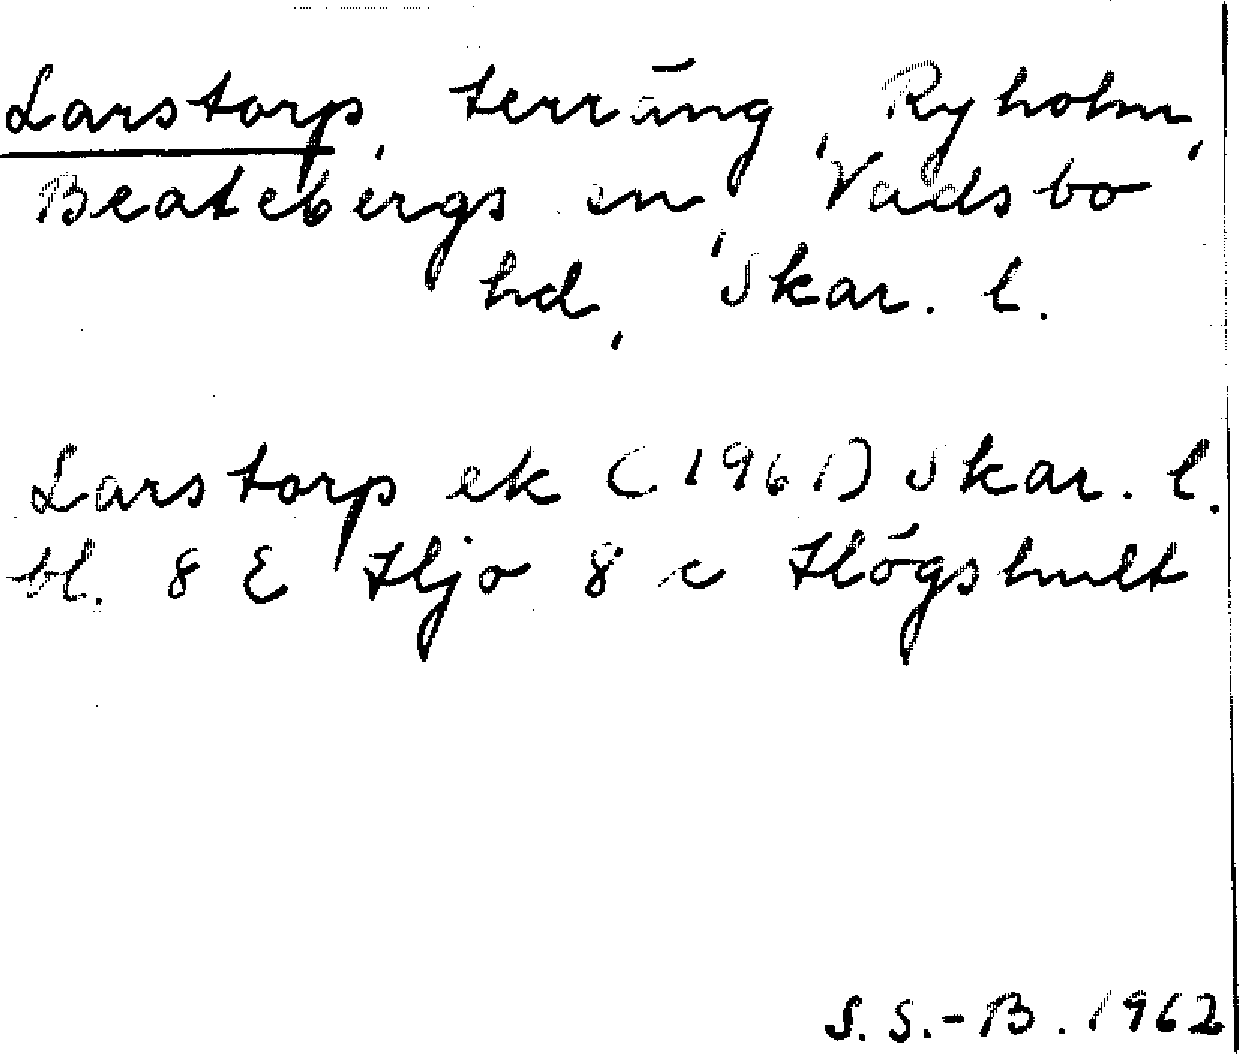 Larstorp, terräng, Ryholm,
Beatebergs sn, Vadsbo
hd, Skar. l.
Larstorp ek (1961) Skar. l.
bl. 8 E Hjo 8 c Högshult
S. S.-B. 1962